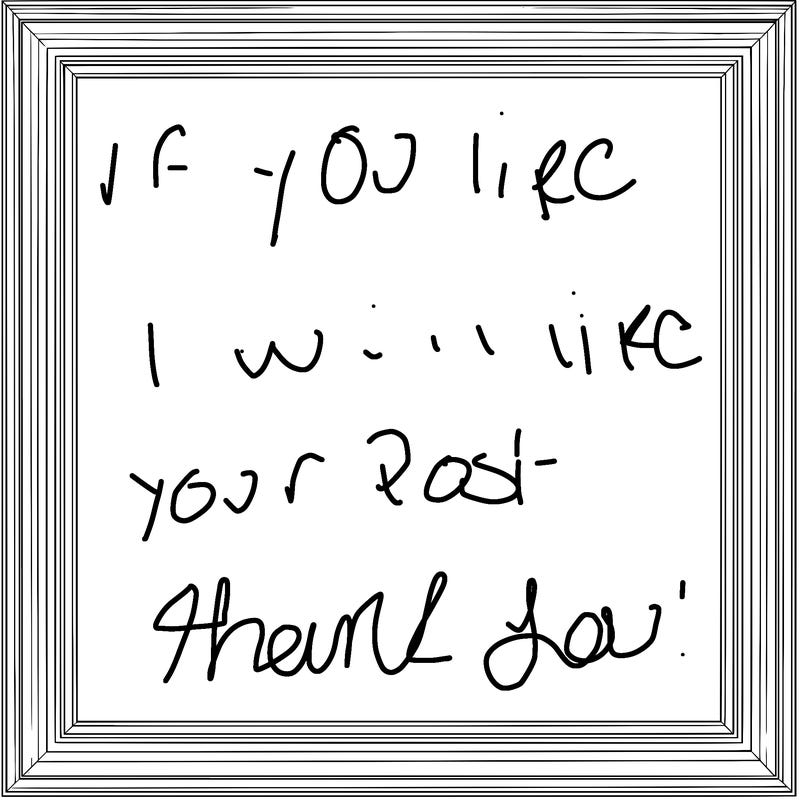 If you like
I will like
your Post
thank you!